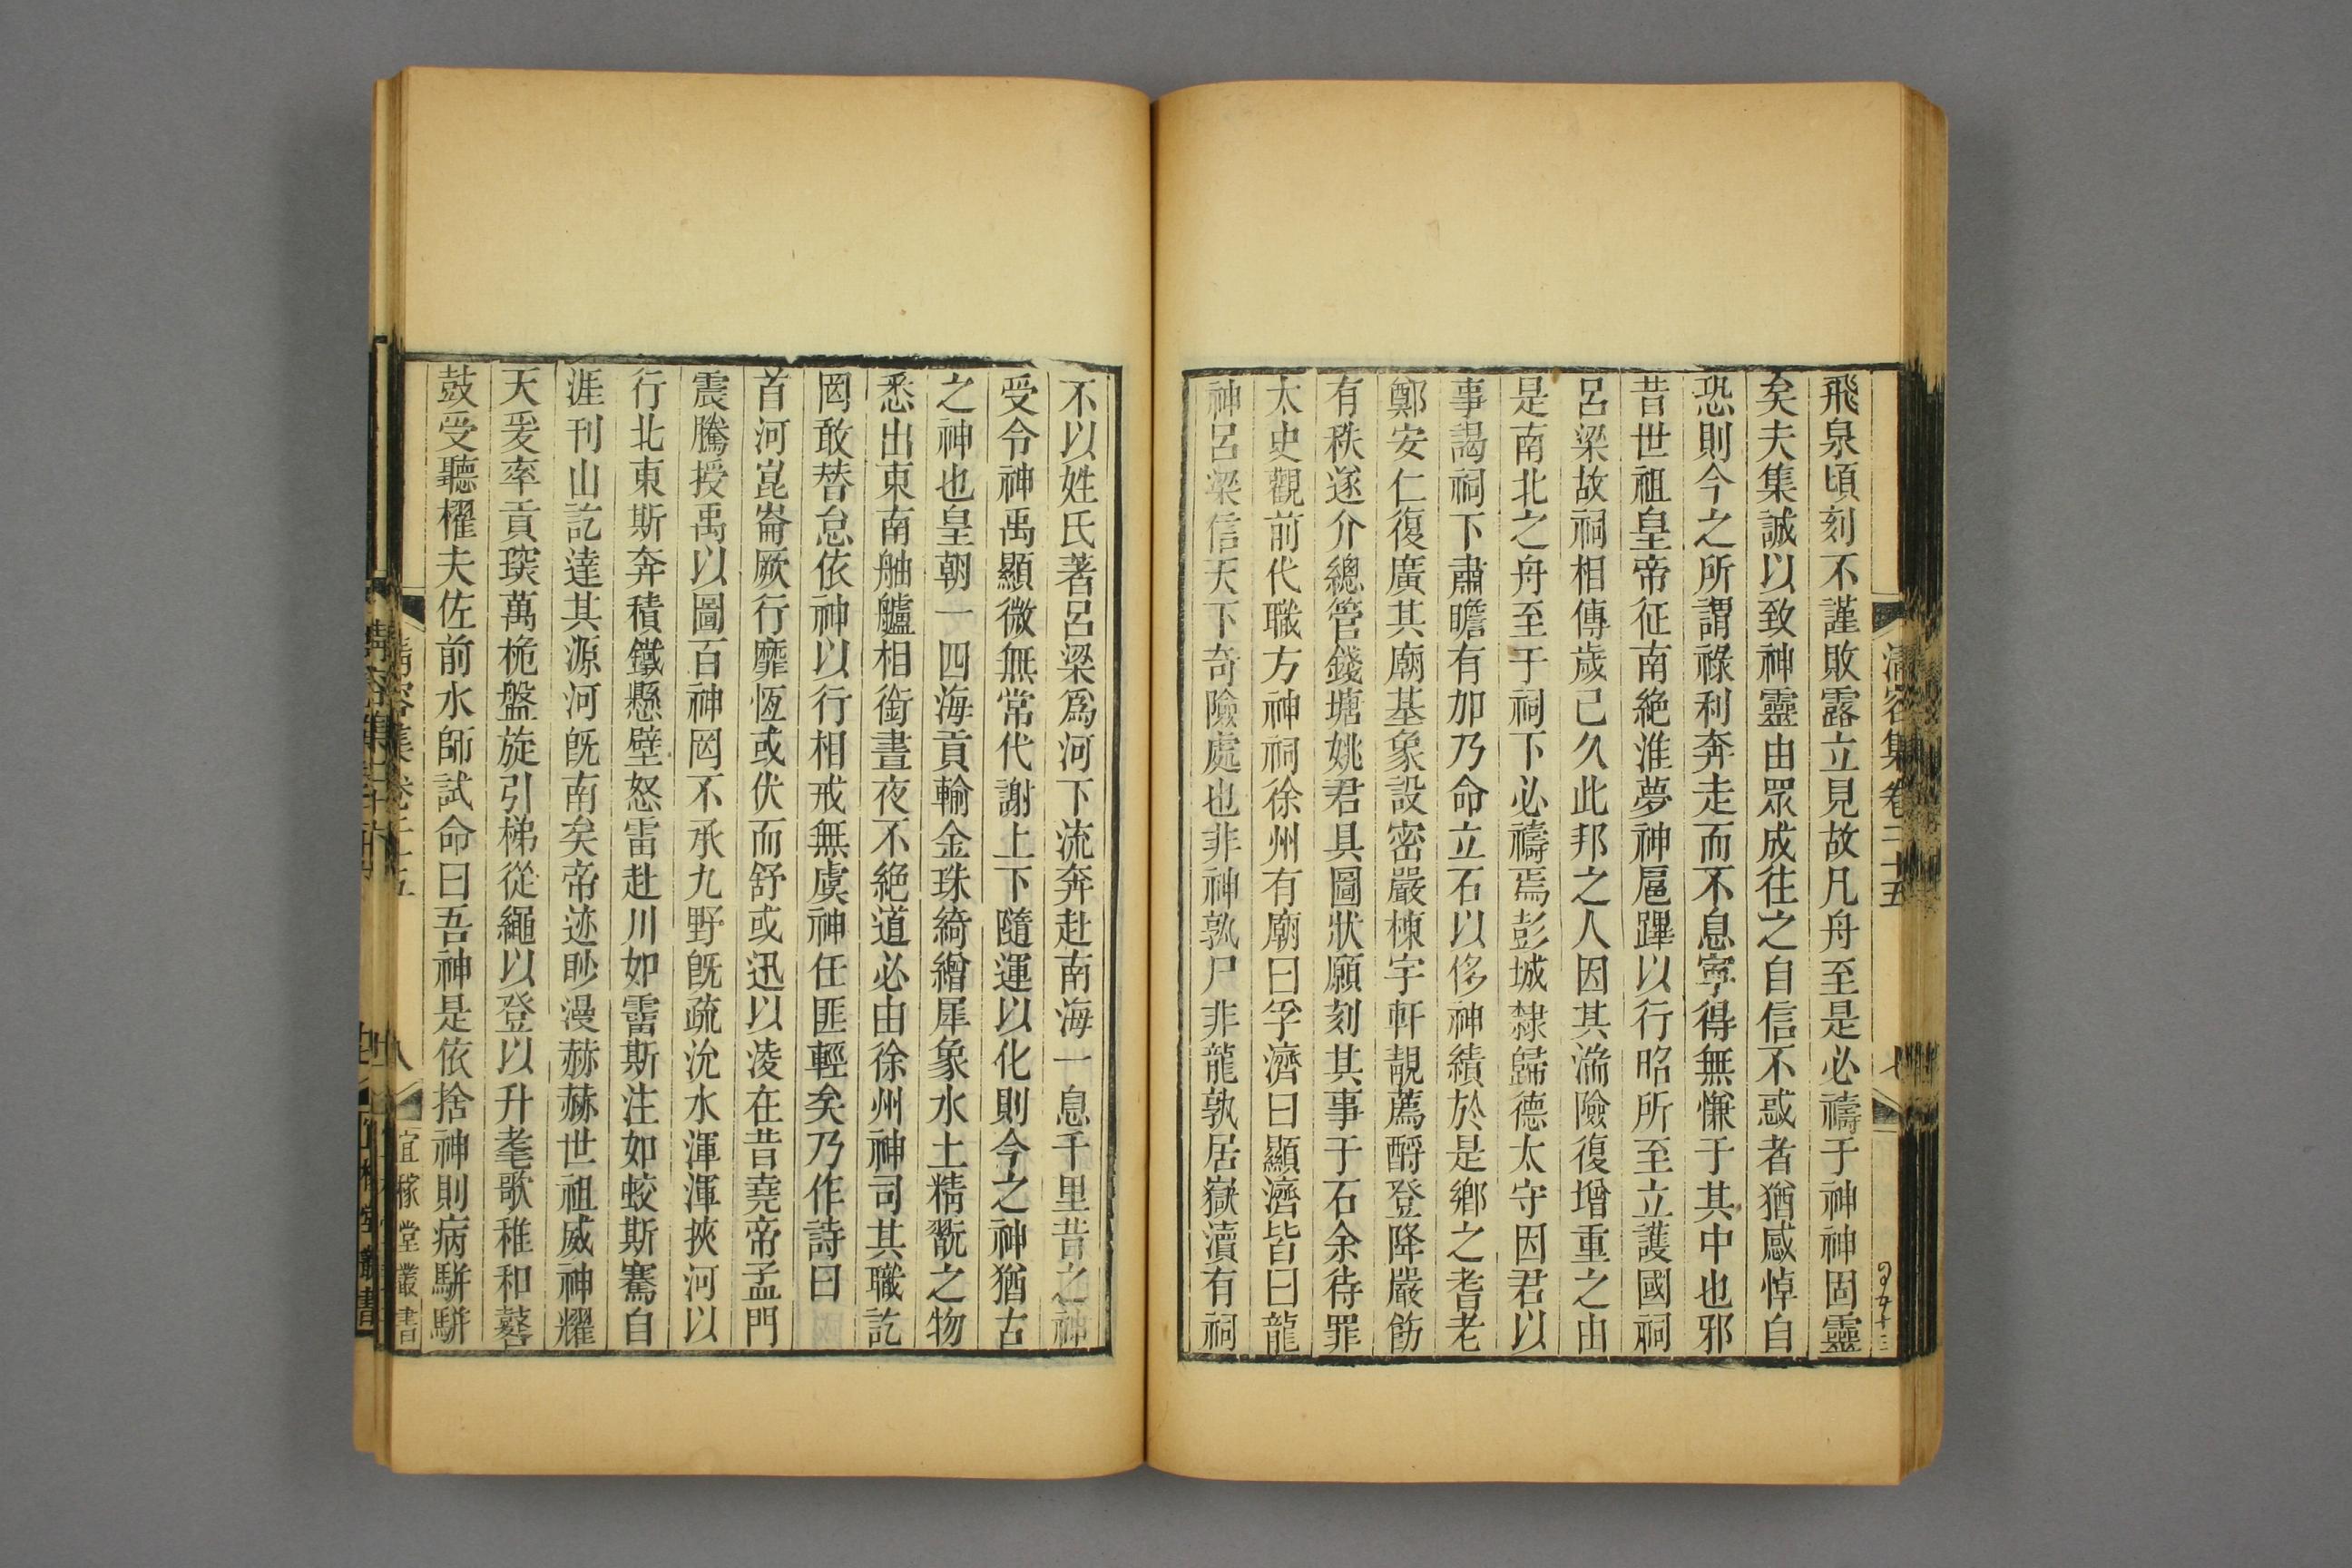 清容集卷二十五
七
飛泉頃刻不謹敗露立見故凡舟至是必禱于神神固靈
矣夫集誠以致神靈由眾成往之自信不惑者猶感悼自
恐則今之所謂祿利奔走而不息寧得無慊于其中也邪
昔世祖皇帝征南絶淮夢神扈蹕以行昭所至立護國祠
呂梁故祠相傳歲己久此邦之人因其湍險復增重之由
是南北之舟至于祠下必禱焉彭城隸歸德太守因君以
事謁祠下肅瞻有加乃命立石以侈神績於是鄉之耆老
鄭安仁復廣其廟基象設密嚴棟宇軒靚薦酹登降嚴飭
有秩遂介總管錢塘姚君具圖狀願刻其事于石余待罪
太史觀前代職方神祠徐州有廟曰孚濟曰顯濟皆曰龍
神呂梁信天下奇險處也非神孰尸非龍孰居嶽瀆有祠
不以姓氏著呂梁爲河下流奔赴南海一息千里昔之神
受令神禹顯微無常代謝上下隨運以化則今之神猶古
之神也皇朝一四海貢輸金珠綺繒犀象水土精翫之物
悉出東南舳艫相銜晝夜不絶道必由徐州神司其職訖
罔敢替怠依神以行相戒無虞神任匪輕矣乃作詩曰
首河崑崙厥行靡恆或伏而舒或迅以凌在昔堯帝孟門
震騰授禹以圖百神罔不承九野旣疏沇水渾渾挾河以
行北東斯奔積鐵懸壁怒雷赴川如霤斯注如蛟斯騫自
涯刊山訖達其源河旣南矣帝迹眇漫赫赫世祖威神耀
天爰率貢琛萬桅盤旋引梯從繩以登以升耄歌稚和鼛
鼓受聽櫂夫佐前水師試命曰吾神是依捨神則病騈騈
清容集卷二十五
八
宜稼堂叢書